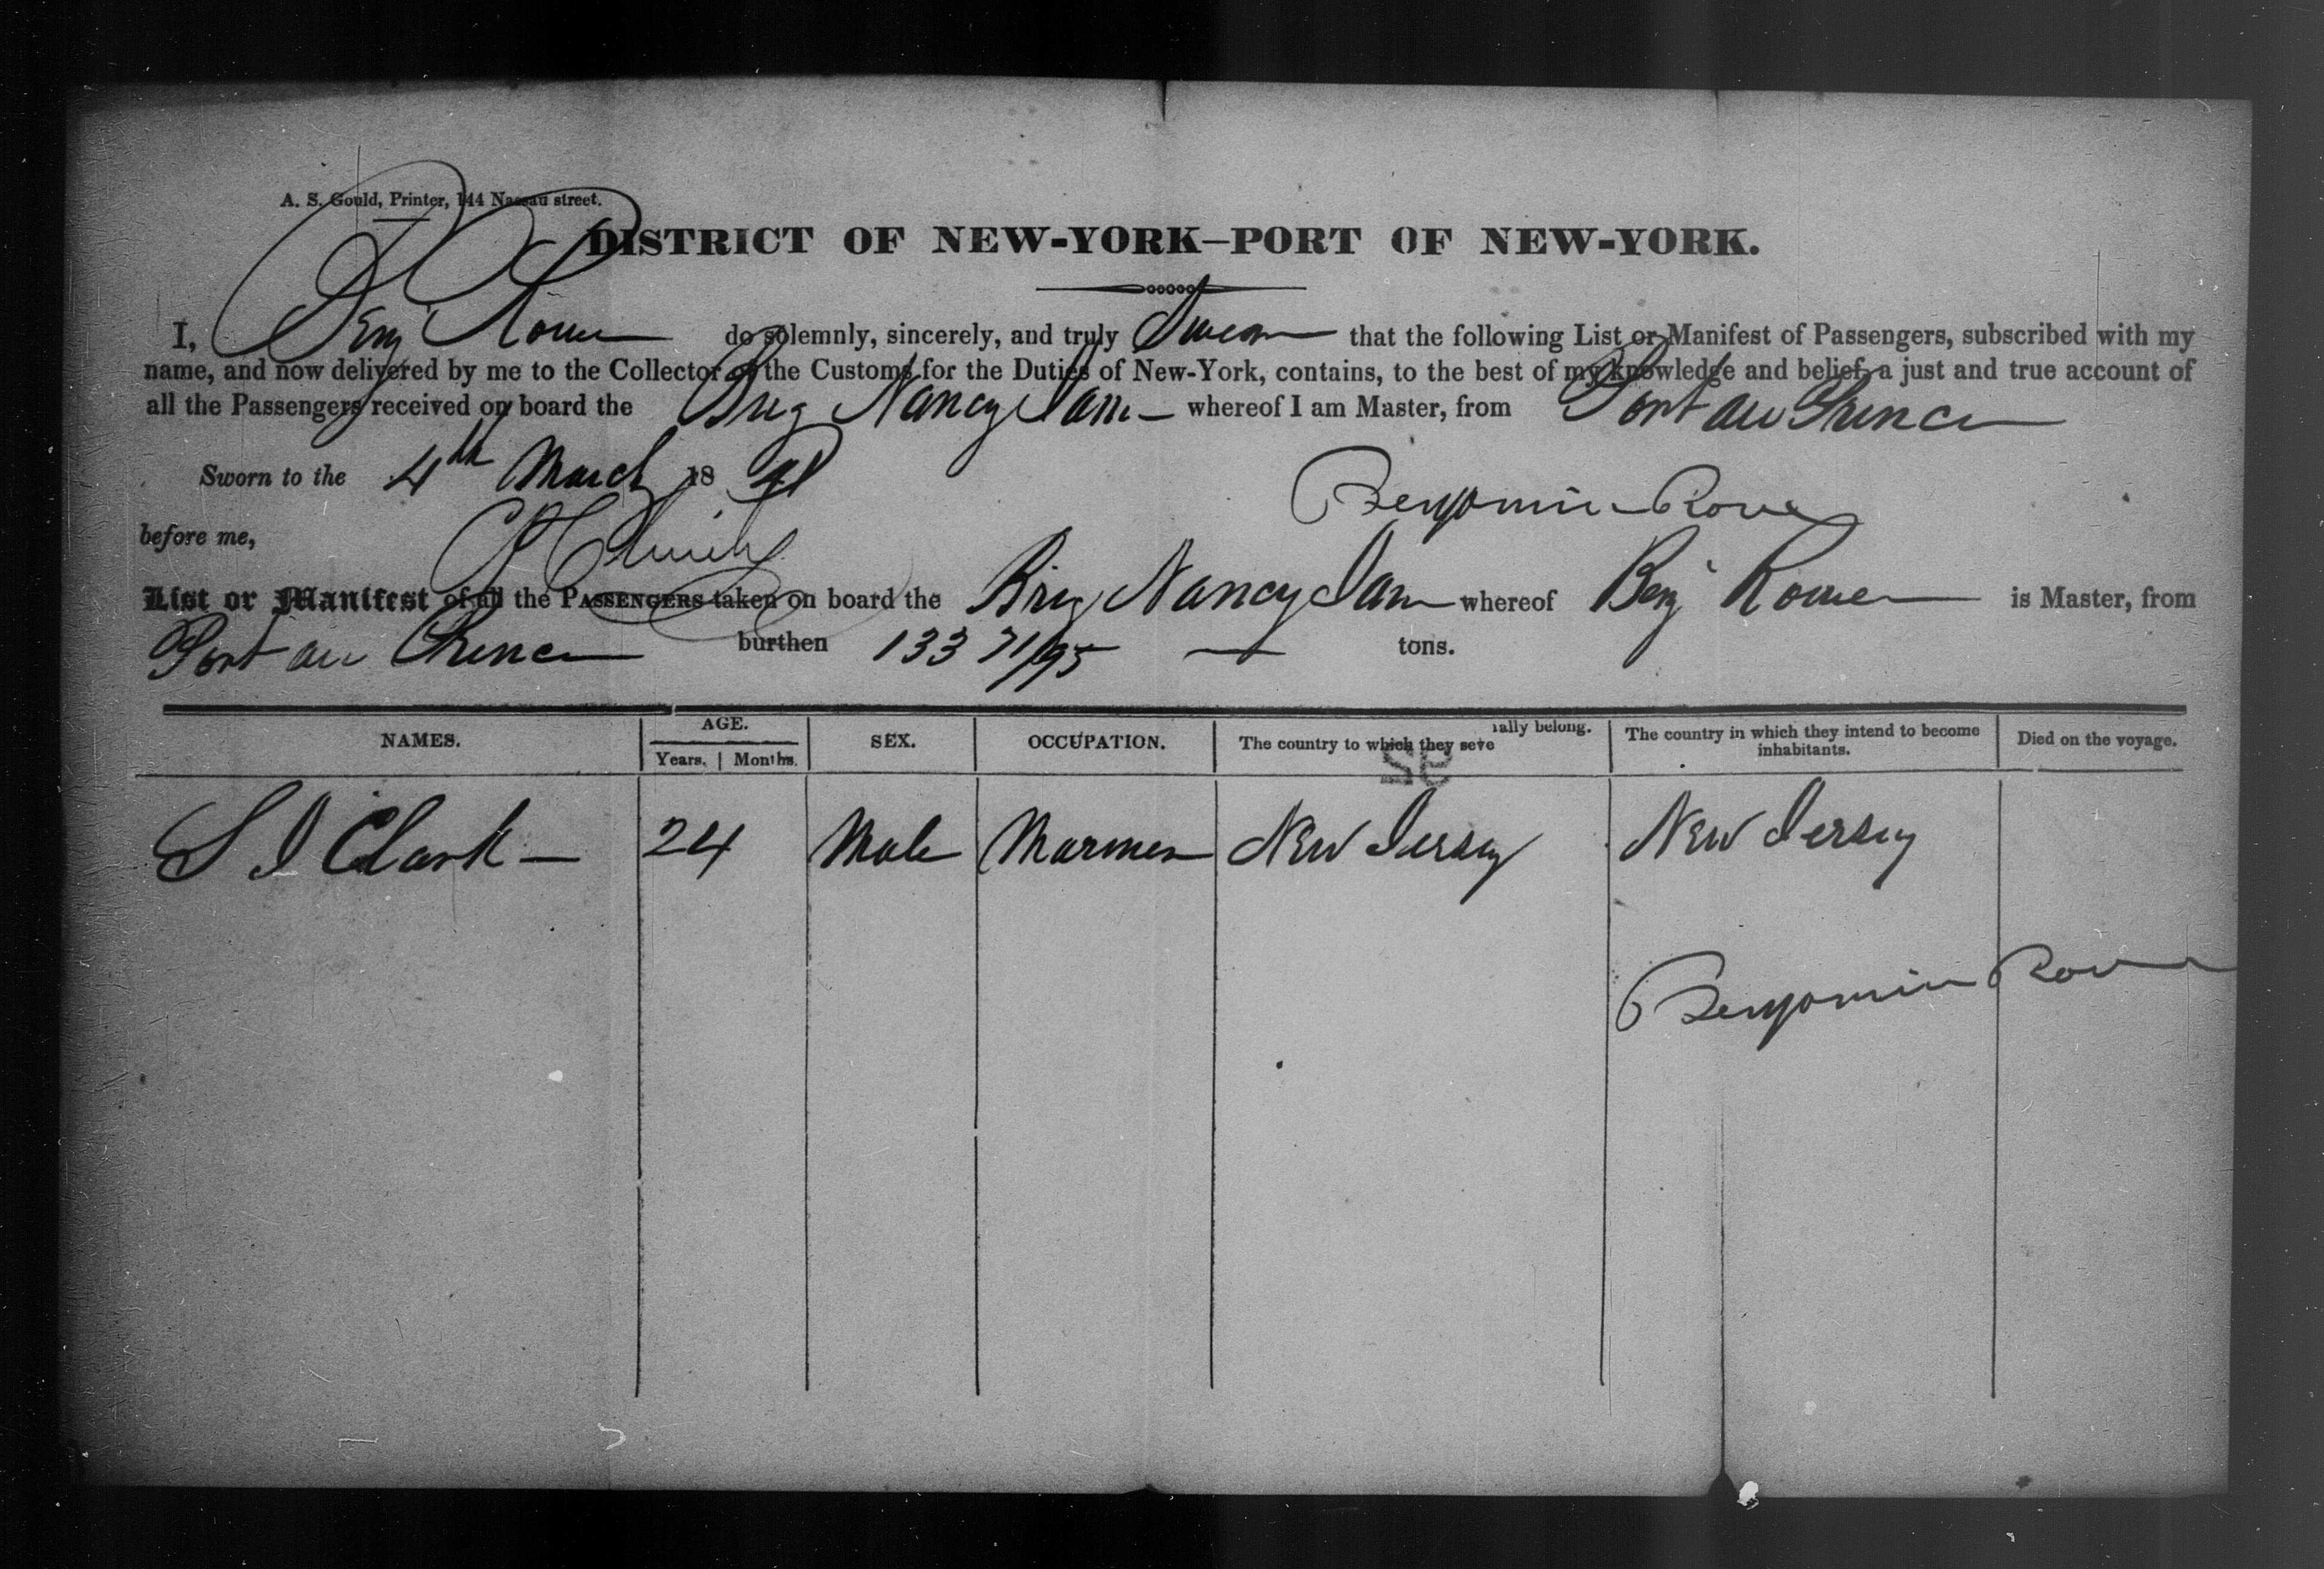 A. S. Gould, Printer, 144 Nassau street.
DISTRICT OF NEW-YORK–PORT OF NEW-YORK.
I, Benj Rowe do solemnly, sincerely, and truly Swear that the following List or Manifest of Passengers, subscribed with my
name, and now delivered by me to the Collector of the Customs for the Duties of New-York, contains, to the best of my knowledge and belief, a just and true account of
all the Passengers received on board the Brig Nancy Jane whereof I am Master, from Port au Prince
Sworn to the 4th March 18 41
Benjamin Rowe
before me,
List or Manifest of all the PASSENGERS taken on board the Brig Nancy Jane whereof Benj Rowe is Master, from
Port au Prince burthen 133 71/95 — tons.
NAMES. AGE. Years. Months. SEX. OCCUPATION. The country to which they seve rally belong. The country in which they intend to become inhabitants. Died on the voyage.
S J Clark — 24 Male Mariner New Jersey New Jersey
Benjamin Rowe